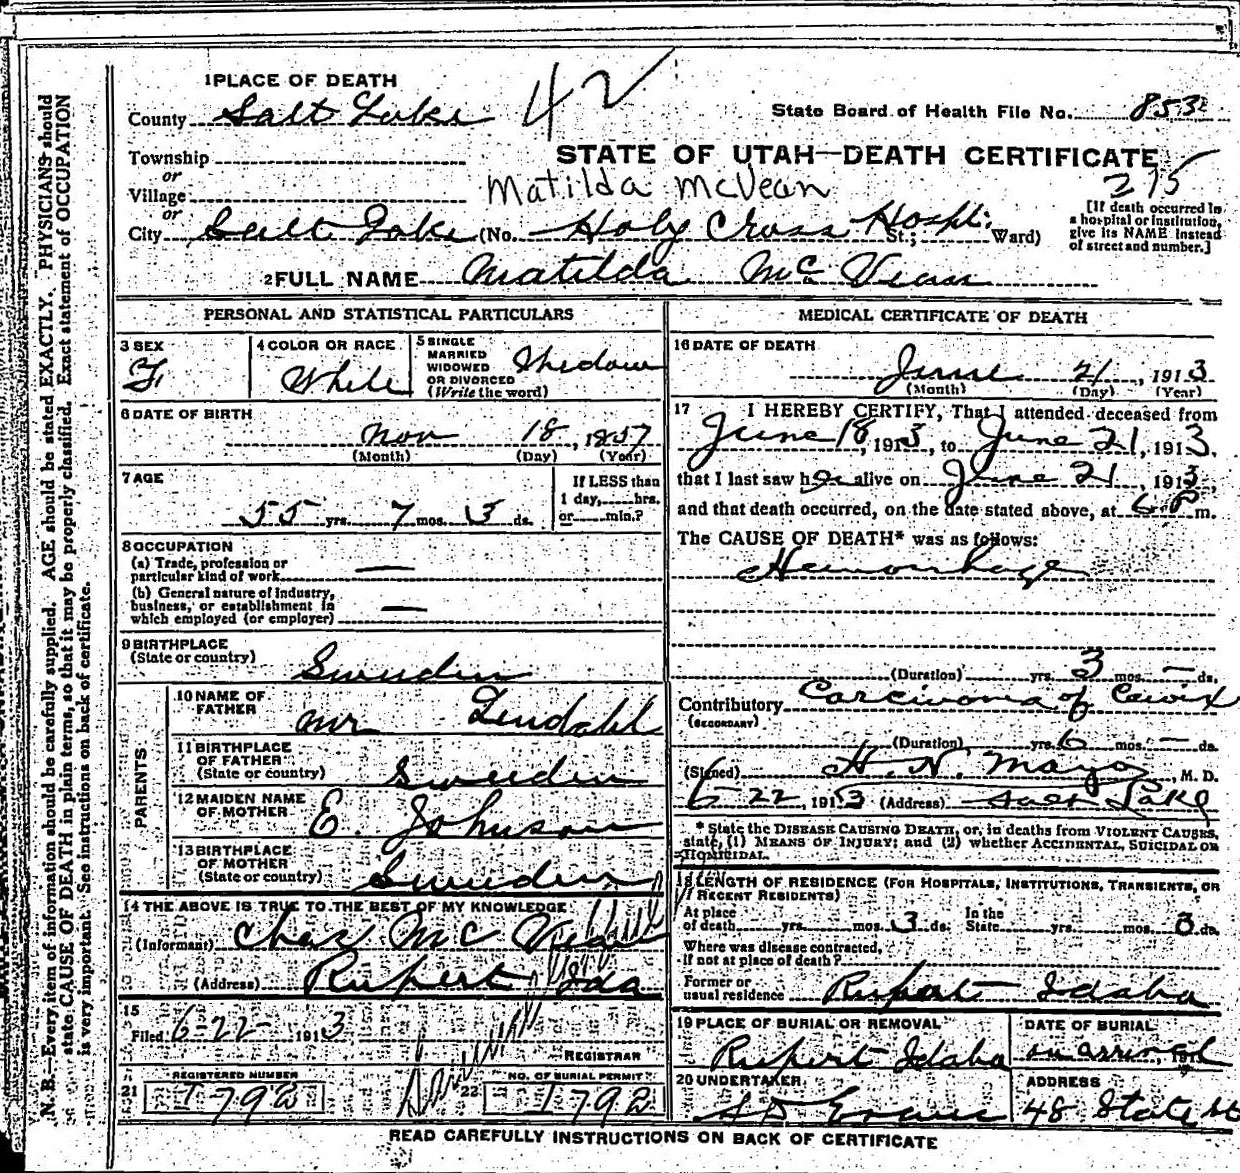 1 PLACE OF DEATH
42
County Salt Lake
State Board of Health File No. 853
Township
or
STATE OF UTAH—DEATH CERTIFICATE
275
Village
Matilda McVean
or
City Salt Lake (No. Holy Cross Hospt. St.; Ward)
[If death occurred in
a hospital or institution,
give its NAME instead
of street and number.]
2 FULL NAME Matilda McVean
PERSONAL AND STATISTICAL PARTICULARS
3 SEX
F
4 COLOR OR RACE
White
5 SINGLE
MARRIED
WIDOWED
OR DIVORCED
(Write the word)
Widow
6 DATE OF BIRTH
Nov 18, 1857
(Month) (Day) (Year)
7 AGE
55 yrs. 7 mos. 3 ds.
If LESS than
1 day, hrs.
or min.?
8 OCCUPATION
(a) Trade, profession or
particular kind of work —
(b) General nature of industry,
business, or establishment in
which employed (or employer) —
9 BIRTHPLACE
(State or country)
Sweeden
PARENTS
10 NAME OF
FATHER
Mr Lindahl
11 BIRTHPLACE
OF FATHER
(State or country)
Sweeden
12 MAIDEN NAME
OF MOTHER
E. Johnson
13 BIRTHPLACE
OF MOTHER
(State or country)
Sweeden
14 THE ABOVE IS TRUE TO THE BEST OF MY KNOWLEDGE
(Informant) Chas McVean
(Address) Rupert Ida
15
Filed 6-22 1913
REGISTRAR
REGISTERED NUMBER
21 I 792
NO. OF BURIAL PERMIT
22 I 792
MEDICAL CERTIFICATE OF DEATH
16 DATE OF DEATH
June 21, 1913
(Month) (Day) (Year)
17 I HEREBY CERTIFY, That I attended deceased from
June 18, 1913, to June 21, 1913.
that I last saw her alive on June 21, 1913,
and that death occurred, on the date stated above, at 6 P m.
The CAUSE OF DEATH* was as follows:
Hemorrhage
(Duration) yrs. 3 mos. — ds.
Contributory Carcinoma of Cervix
(SECONDARY)
(Duration) yrs. 6 mos. — ds.
(Signed) H. N. Mayo, M. D.
6 22, 1913 (Address) Salt Lake
* State the DISEASE CAUSING DEATH, or, in deaths from VIOLENT CAUSES,
state, (1) MEANS OF INJURY; and (2) whether ACCIDENTAL, SUICIDAL OR
HOMICIDAL.
18 LENGTH OF RESIDENCE (FOR HOSPITALS, INSTITUTIONS, TRANSIENTS, OR
RECENT RESIDENTS)
At place
of death yrs. mos. 3 ds.
In the
State yrs. mos. 3 ds.
Where was disease contracted,
if not at place of death?
Former or
usual residence Rupert Idaho
19 PLACE OF BURIAL OR REMOVAL
Rupert Idaho
DATE OF BURIAL
on arrival
20 UNDERTAKER
S D Evans
ADDRESS
48 State St
READ CAREFULLY INSTRUCTIONS ON BACK OF CERTIFICATE
N. B.—Every item of information should be carefully supplied. AGE should be stated EXACTLY. PHYSICIANS should
state CAUSE OF DEATH in plain terms, so that it may be properly classified. Exact statement of OCCUPATION
is very important. See instructions on back of certificate.